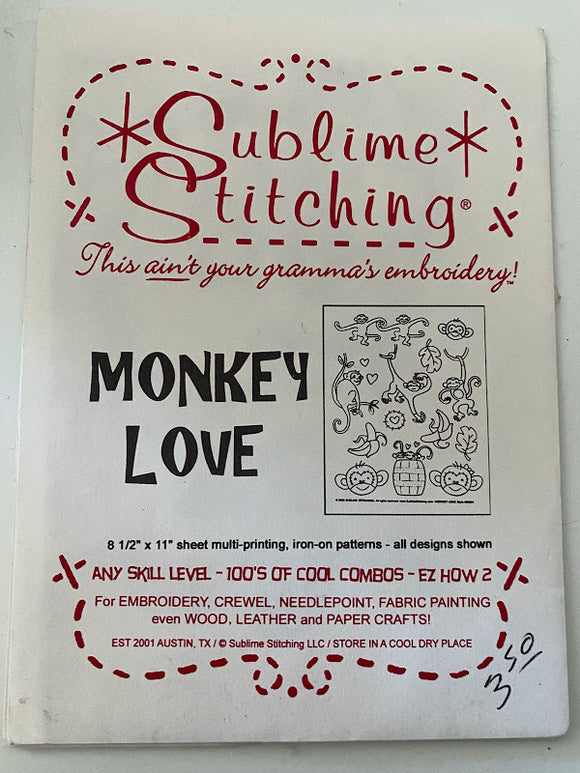 *Sublime*
Stitching®
This ain't your gramma's embroidery!™
MONKEY
LOVE
8 1/2" x 11" sheet multi-printing, iron-on patterns - all designs shown
ANY SKILL LEVEL - 100'S OF COOL COMBOS - EZ HOW 2
For EMBROIDERY, CREWEL, NEEDLEPOINT, FABRIC PAINTING
even WOOD, LEATHER and PAPER CRAFTS!
EST 2001 AUSTIN, TX / © Sublime Stitching LLC / STORE IN A COOL DRY PLACE
3 50